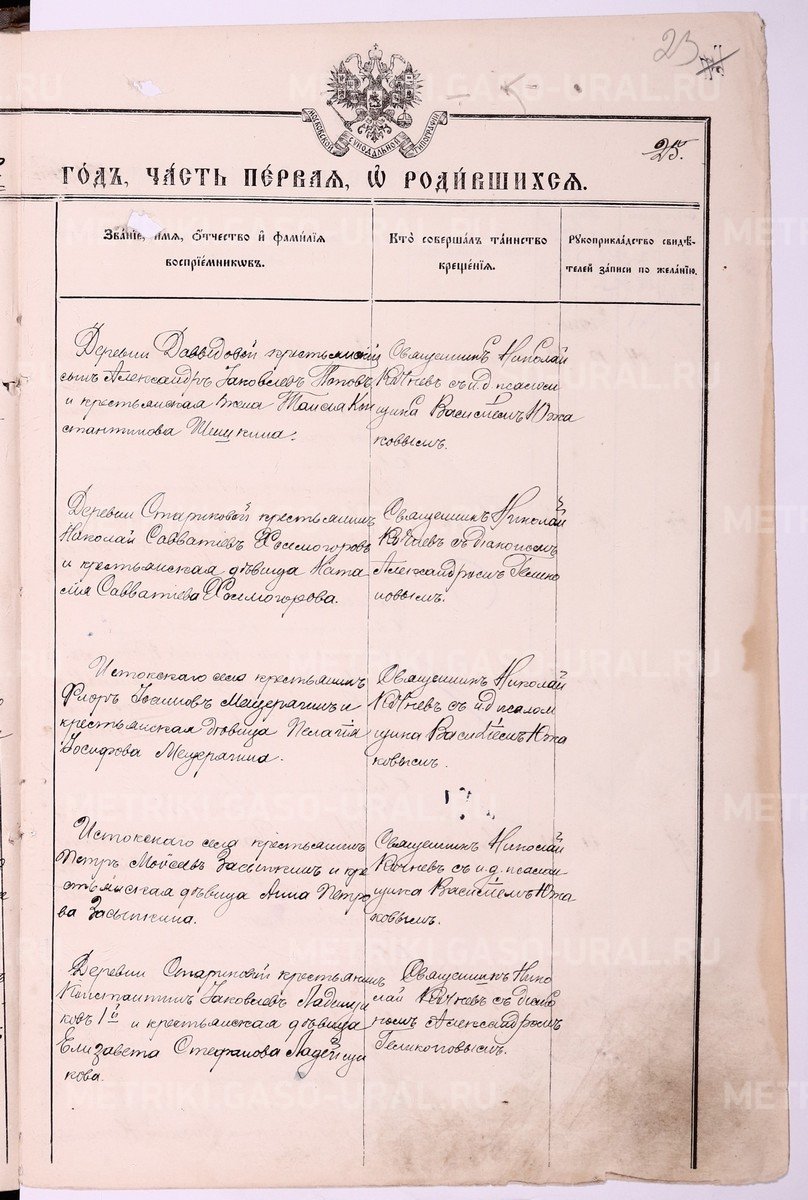 23
25.
МОСКОВСКОЙ СѴНОДАЛЬНОЙ ТИПОГРАФІИ
ГО́ДЪ, ЧА́СТЬ ПЕ́РВАЯ, Ѡ҆ РОДИ́ВШИХСЯ.
Зва́ніе, и҆́мя, ѻ҆́тчество и҆ фами́лїѧ
воспрїе́мникѡвъ.
Кто̀ соверша́лъ та́инство
креще́нїѧ.
Рꙋкоприкла́дство свидѣ́-
телей за́писи по жела́нїю.
Деревни Даввидовой крестьянскій
сынъ Александръ Іаковлевъ Поповъ
и крестьянская жена Таисія Кон
стантинова Шешкина.
Священникъ Николай
Кочневъ съ и.д. псалом
щика Василіемъ Южа
ковымъ.
Деревни Стариковой крестьянинъ
Николай Савватіевъ Холмогоровъ
и крестьянская дѣвица Ната
лія Савватіева Холмогорова.
Священникъ Николай
Кочневъ съ діакономъ
Александромъ
Истокскаго села крестьянинъ
Флоръ Іоанновъ Мещерагинъ и
крестьянская дѣвица Пелагія
Іосифова Мещерагина.
Священникъ Николай
Кочневъ съ и.д. псалом
щика Василіемъ Южа
ковымъ.
Истокскаго села крестьянинъ
Петръ Моѵсеевъ Засыпкинъ и кре
стьянская дѣвица Анна Петро
ва Засыпкина.
Священникъ Николай
Кочневъ съ и.д. псалом
щика Василіемъ Южа
ковымъ.
Деревни Стариковой крестьянинъ
Константинъ Іаковлевъ Ладейщи
ковъ 1й и крестьянская дѣвица
Елизавета Стефанова Ладейщи
кова.
Священникъ Нико
лай Кочневъ съ діако
номъ Александромъ
METRIKI.GASO-URAL.RU